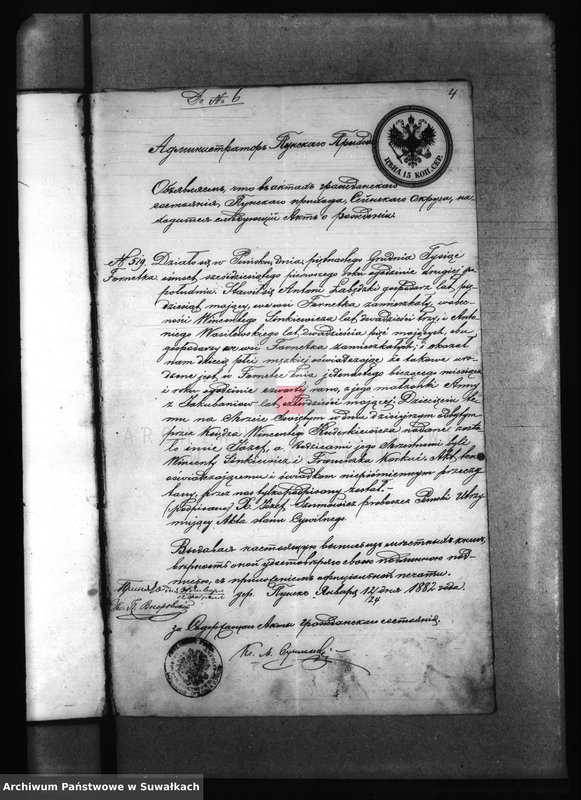 До № 6
4
Администраторъ Пунскаго Прихода
ЦѢНА 15 КОП. СЕР.
Объявляемъ, что въ актахъ гражданскаго
состоянія, Пунскаго прихода, Сейнскаго Округа, на-
ходится слѣдующій Актъ о рожденіи.
№ 519. Działo się w Puńsku, dnia, piętnastego Grudnia Tysiąc
Fornetka ośmset sześćdziesiątego pierwszego roku o godzinie drugiej po
południu. Stawił się Antoni gospodarz lat, pię
dziesiąt, mający, we wsi Fornetka zamieszkały, w obec-
ności Wincentego Sinkiewicza lat, dwadzieści trzy, i Anto-
niego Wasilewskiego lat, dwadzieścia pięć mających, obu
gospodarzy we wsi Fornetka zamieszkałych; i okazał
nam dziecię płci męzkiej oświadczając że takowe uro-
dzone jest, w Fornetce dnia jedenastego bieżącego miesiąca
i roku o godzinie czwartej rano, z jego małżonki Anny
z Jakubaniow lat, czterdzieści mającej. Dziecięciu te-
mu na Chrzcie Świętym w dniu dzisiejszym odbytym
przez Księdza Wincentego nadane zosta
ło imie Józef, a Rodzicami jego Chrzestnemi byli
Wincenty Sinkiewicz i Franciszka Akt, ten
oświadczającemu i świadkom niepiśmiennym przeczy
tany, przez nas tylko podpisany został.-
(podpisano) X. Józef Szumowicz proboszcz Puński Utrzy
mujący Akta stanu Cywilnego.
Выдавая настоящую выпись изъ мѣстныхъ книгъ,
вѣрность оной удостовѣряю своею собственною под-
писью, съ приложеніемъ оффиціальной печати.
дер. Пунскъ Января 12/24 дня 1882 года
За Содержащаго Акты гражданскаго состоянія,
Кс. А.
Кс. П.
Archiwum Państwowe w Suwałkach